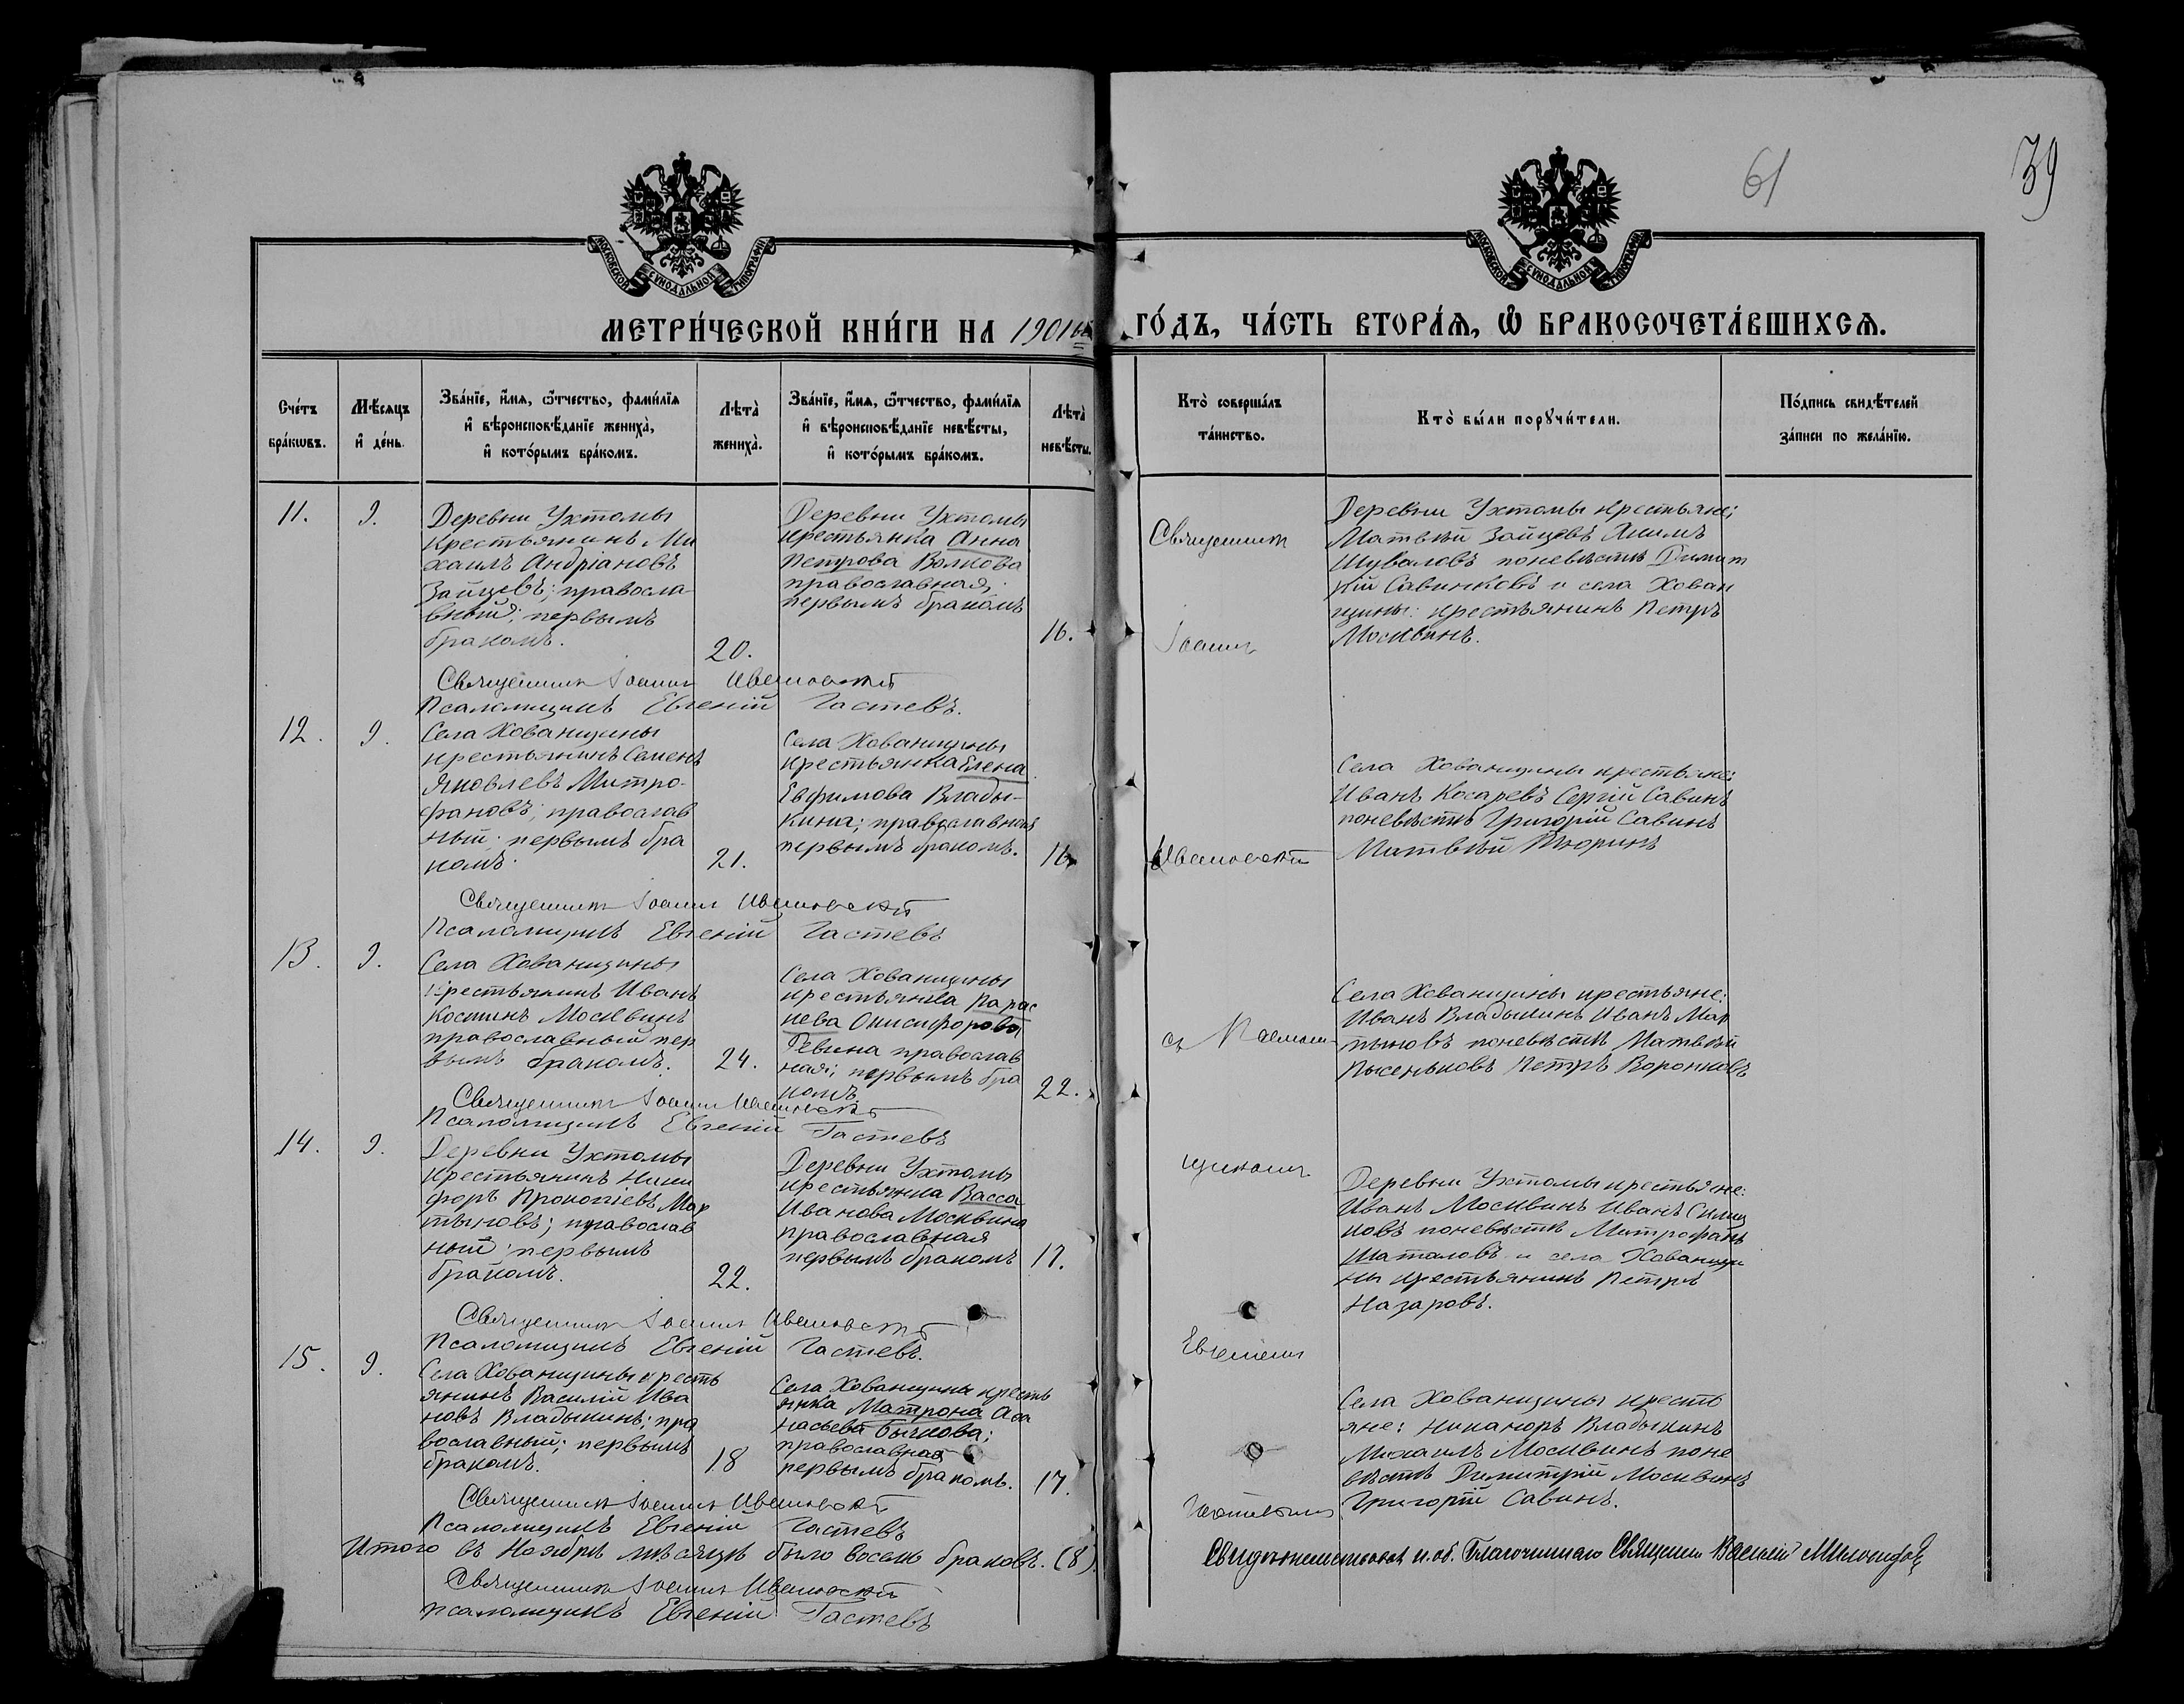 61
39
МОСКОВСКОЙ СѴНОДАЛЬНОЙ ТИПОГРАФІИ
МОСКОВСКОЙ СѴНОДАЛЬНОЙ ТИПОГРАФІИ
МЕТРИ́ЧЕСКОЙ КНИ́ГИ НА 1901й ГО́ДЪ, ЧА́СТЬ ВТОРА́Ѧ, Ѡ҆ БРАКОСОЧЕТА́ВШИХСѦ.
Сче́тъ бра́кѡвъ.
Мѣ́сѧцъ и҆ де́нь.
Зва́нїе, и҆́мѧ, ѻ҆́тчество, фами́лїѧ и҆ вѣроисповѣ́данїе жениха̀, и҆ кото́рымъ бра́комъ.
Лѣта̀ жениха̀.
Зва́нїе, и҆́мѧ, ѻ҆́тчество, фами́лїѧ и҆ вѣроисповѣ́данїе невѣ́сты, и҆ кото́рымъ бра́комъ.
Лѣта̀ невѣ́сты.
Кто̀ соверша́лъ та́инство.
Кто̀ бы́ли порꙋчи́тели.
По́дпись свидѣ́телей за́писи по жела́нїю.
11.
9.
Деревни Ухтомы
крестьянинъ Ми
хаилъ Андріановъ
Зайцевъ; правосла-
вный; первымъ
бракомъ.
20.
Деревни Ухтомы
крестьянка Анна
Петрова Волкова
православная;
первымъ бракомъ
16.
Священникъ
Іоаннъ
Деревни Ухтомы крестьяне:
Матвѣй Зайцевъ Акимъ
Шуваловъ поневѣстѣ Димит
рій Савинковъ и села Хован
щины: крестьянинъ Петръ
Москвинъ.
Священникъ Іоаннъ
Псаломщикъ Евгеній Гастевъ.
12.
9.
Села Хованщины
крестьянинъ Семенъ
Яковлевъ Митро-
фановъ; православ
ный; первымъ бра
комъ.
21.
Села Хованщины
крестьянка Елена
Евфимова Влады-
кина; православная
первымъ бракомъ.
16.
Села Хованщины крестьяне:
Иванъ Косаревъ Сергій Савинъ
поневѣстѣ Григорій Савинъ
Матвѣй Тюринъ
Священникъ Іоаннъ
Псаломщикъ Евгеній Гастевъ
13.
9.
Села Хованщины
крестьянинъ Иванъ
Костинъ Москвинъ
православный пер
вымъ бракомъ.
24.
Села Хованщины
крестьянка Парас
кева Онисифорова
Гевина православ
ная; первымъ бра
комъ
22.
съ Псалом-
Села Хованщины крестьяне:
Иванъ Владыкинъ Иванъ Мар
тыновъ поневѣстѣ Матвѣй
Лысеньковъ Петръ Воронковъ
Священникъ Іоаннъ
Псаломщикъ Евгеній Гастевъ
14.
9.
Деревни Ухтомы
крестьянинъ Ники
форъ Прокопіевъ Мар
тыновъ; православ
ный; первымъ
бракомъ.
22.
Деревни Ухтомы
крестьянка Васса
Иванова Москвина
православная
первымъ бракомъ
17.
щикомъ
Деревни Ухтомы крестьяне:
Иванъ Москвинъ Иванъ
новъ поневѣстѣ Митрофанъ
Шаталовъ и села Хованщи
ны крестьянинъ Петръ
Назаровъ.
Священникъ Іоаннъ
Псаломщикъ Евгеній Гастевъ.
15.
9.
Села Хованщины кресть
янинъ Василій Ива
новъ Владыкинъ; пра
вославный; первымъ
бракомъ.
18
Села Хованщины кресть
янка Матрона Афа
насьева Бычкова;
православная
первымъ бракомъ.
17.
Евгеніемъ
Гастевымъ
Села Хованщины кресть
яне: Никаноръ Владыкинъ
Михаилъ Москвинъ поне
вѣстѣ Димитрій Москвинъ
Григорій Савинъ.
Священникъ Іоаннъ
Псаломщикъ Евгеній Гастевъ
Итого въ Ноябрѣ мѣсяцѣ было восемь браковъ. (8).
Священникъ Іоаннъ
Псаломщикъ Евгеній Гастевъ
и.об. Благочиннаго Священ. Василій